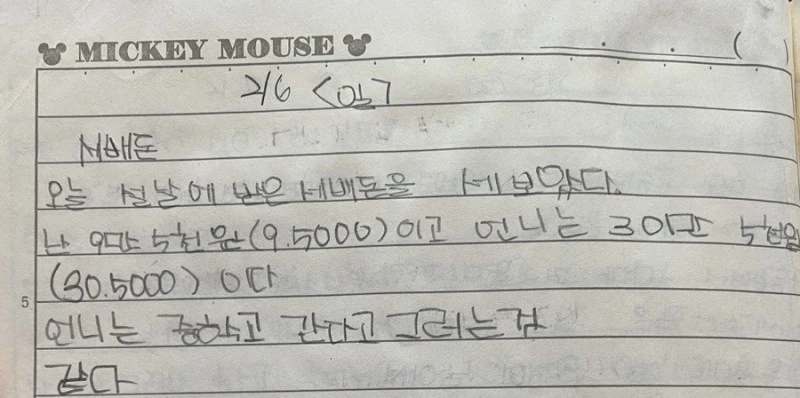 MICKEY MOUSE
. . (   )
2/6 <일>
세배돈
오늘 설날에 받은 세배돈을 세보았다.
난 9만 5천원(9.5000)이고 언니는 30만 5천원
(30.5000)이다
5
언니는 중학교 간다고 그러는것
같다